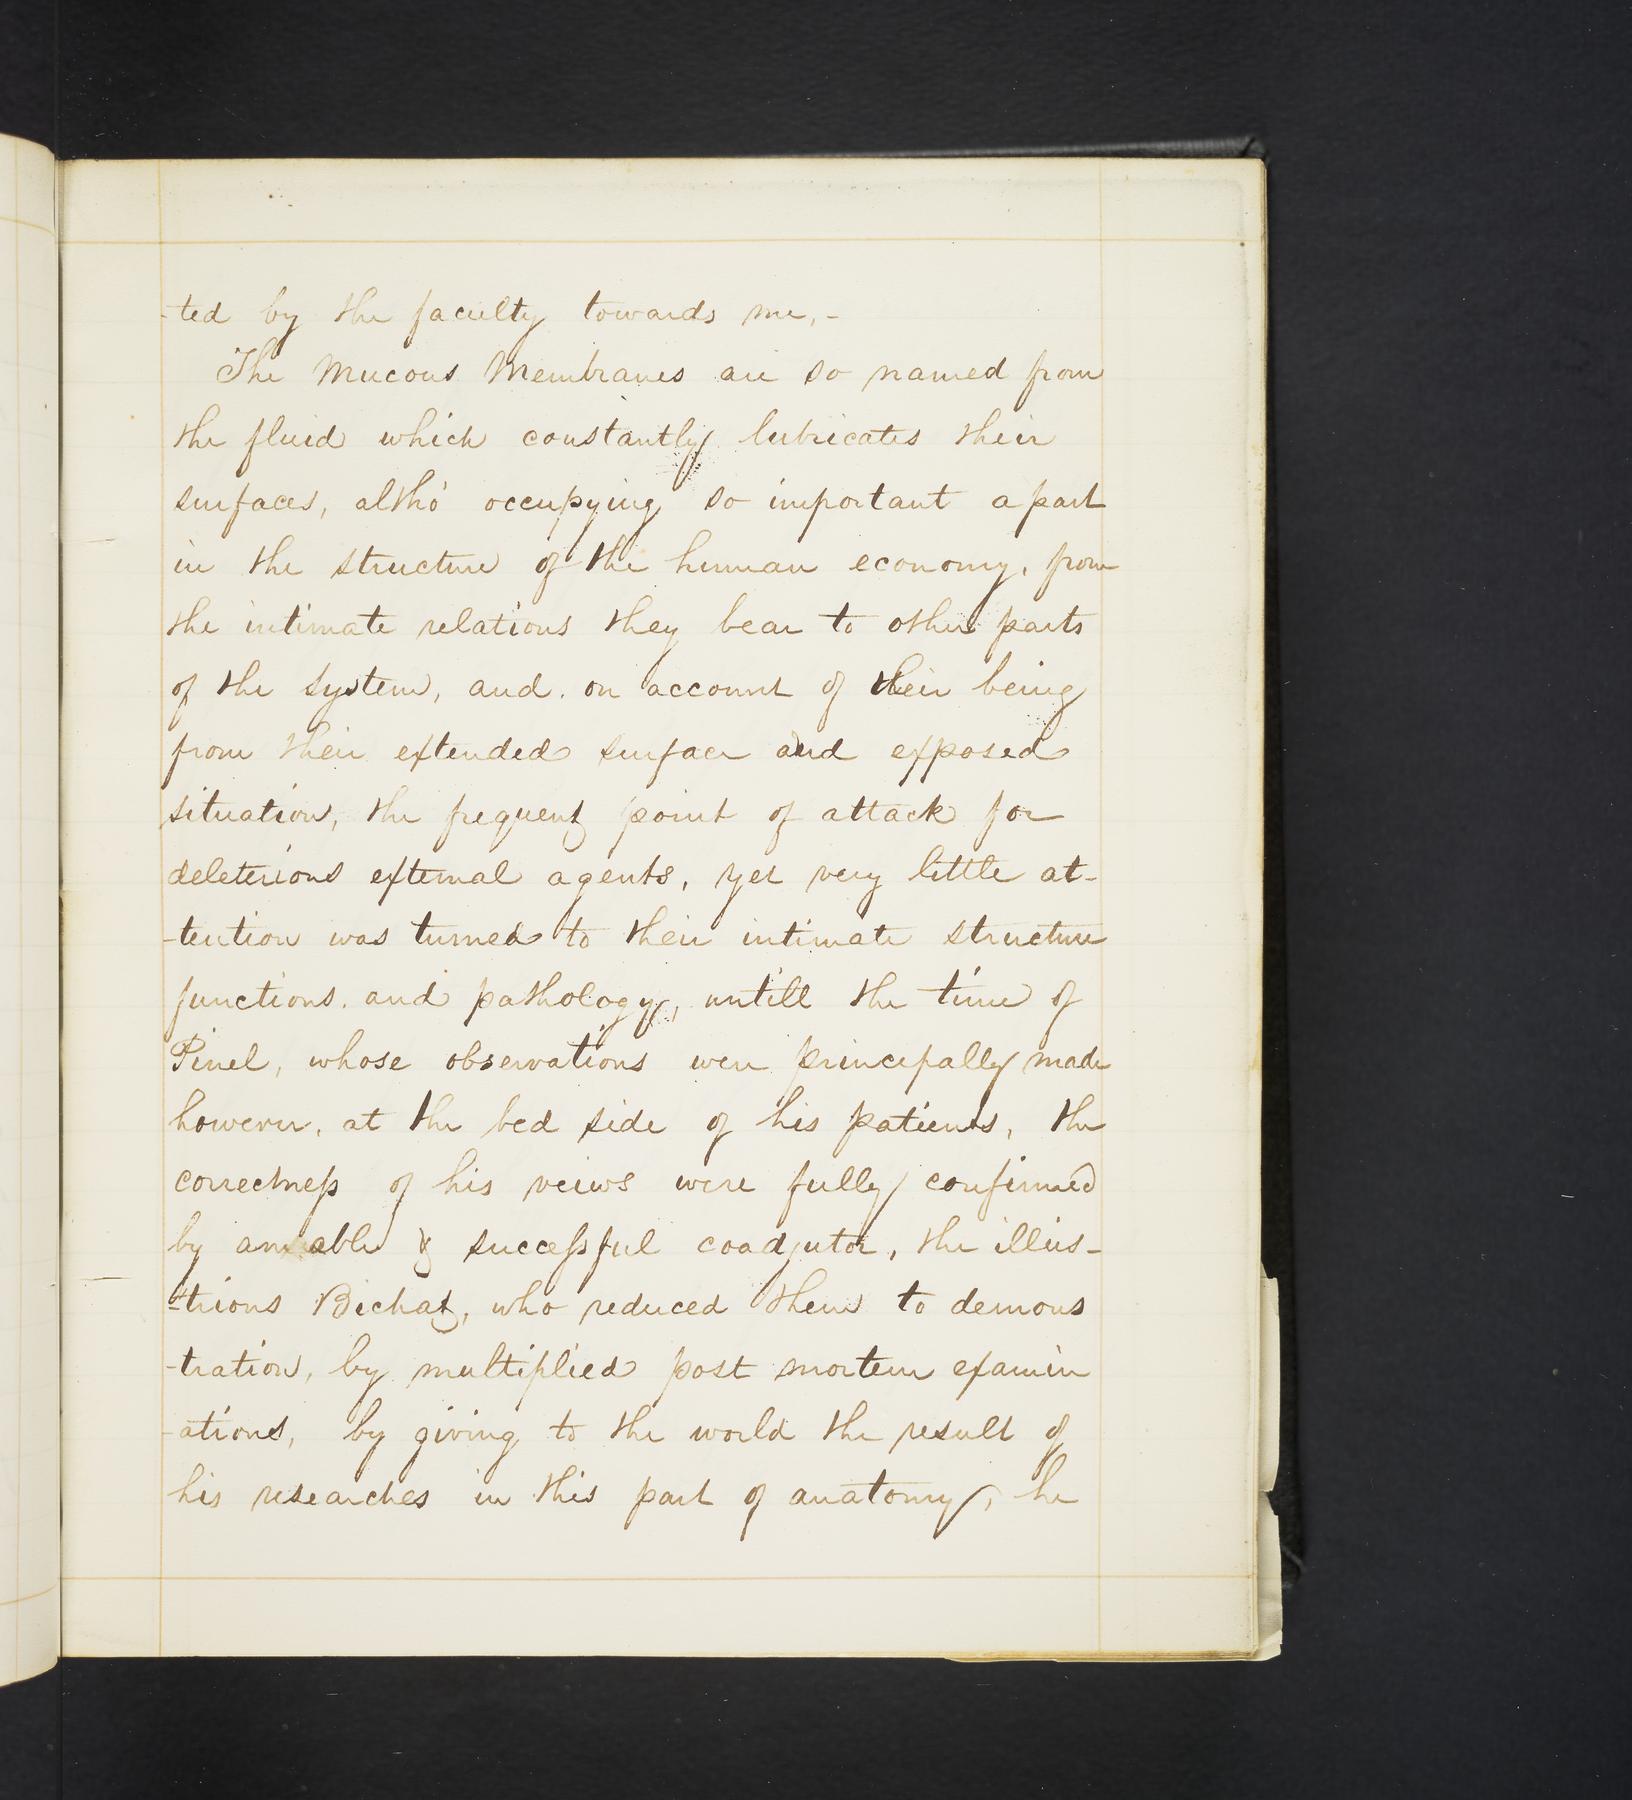 -ted by the faculty towards me,-
The Mucous Membranes are so named from
the fluid which constantly lubricates their
surfaces, altho' occupying so important a part
in the structure of the human economy, from
the intimate relations they bear to other parts
of the system, and on account of their being
from their extended surface and exposed
situation, the frequent point of attack for
deleterious external agents, yet very little at-
-tention was turned to their intimate structure
functions. and pathology, untill the time of
Pinel, whose observations were principally made
however, at the bed side of his patients, the
correctness of his veiws were fully confirmed
by an able & successful coadjutor, the illus-
-trious Bichat, who reduced them to demons
-tration, by multiplied post mortem examin
-ations, by giving to the world the result of
his researches in this part of anatomy, he